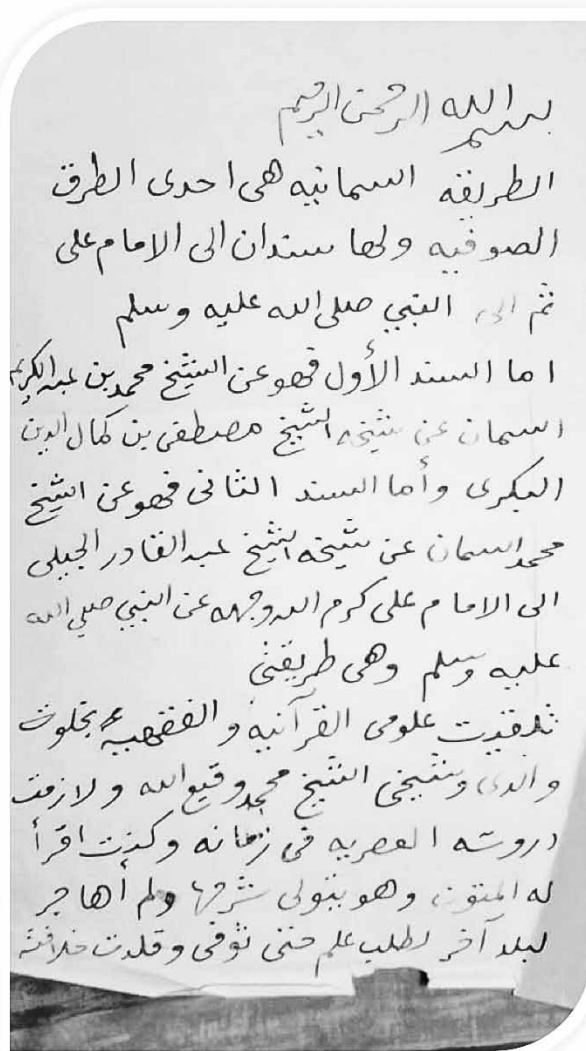 بسم الله الرحمن الرحيم
الطريقه السمانيه هى احدى الطرق
الصوفيه ولها سندان الى الامام على
ثم الى النبي صلى الله عليه وسلم
اما السند الأول فهو عن الشيخ محمد بن عبد الكريم
السمان عن شيخه الشيخ مصطفى بن كمال الدين
البكرى وأما السند الثانى فهو عن الشيخ
محمد السمان عن شيخه الشيخ عبد القادر الجيلى
الى الامام على كرم الله وجهه عن النبي صلى الله
عليه وسلم وهى طريقتى
تلقيت علومى القرآنيه و الفقهيه بخلوة
والدى وشيخى الشيخ محمد وقيع الله ولازمت
دروسه العصريه فى زمانه وكنت اقرأ
له المتون وهو يتولى شرحها ولم أهاجر
لبلد آخر لطلب علم حتى توفى وقلدت خلافته